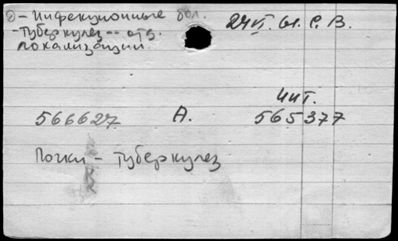 - Инфекционные бол. 24 VI. 61. С. В.
- Туберкулез -- отд.
локализации.
Чит.
566627 А. 565377
Почки - туберкулез